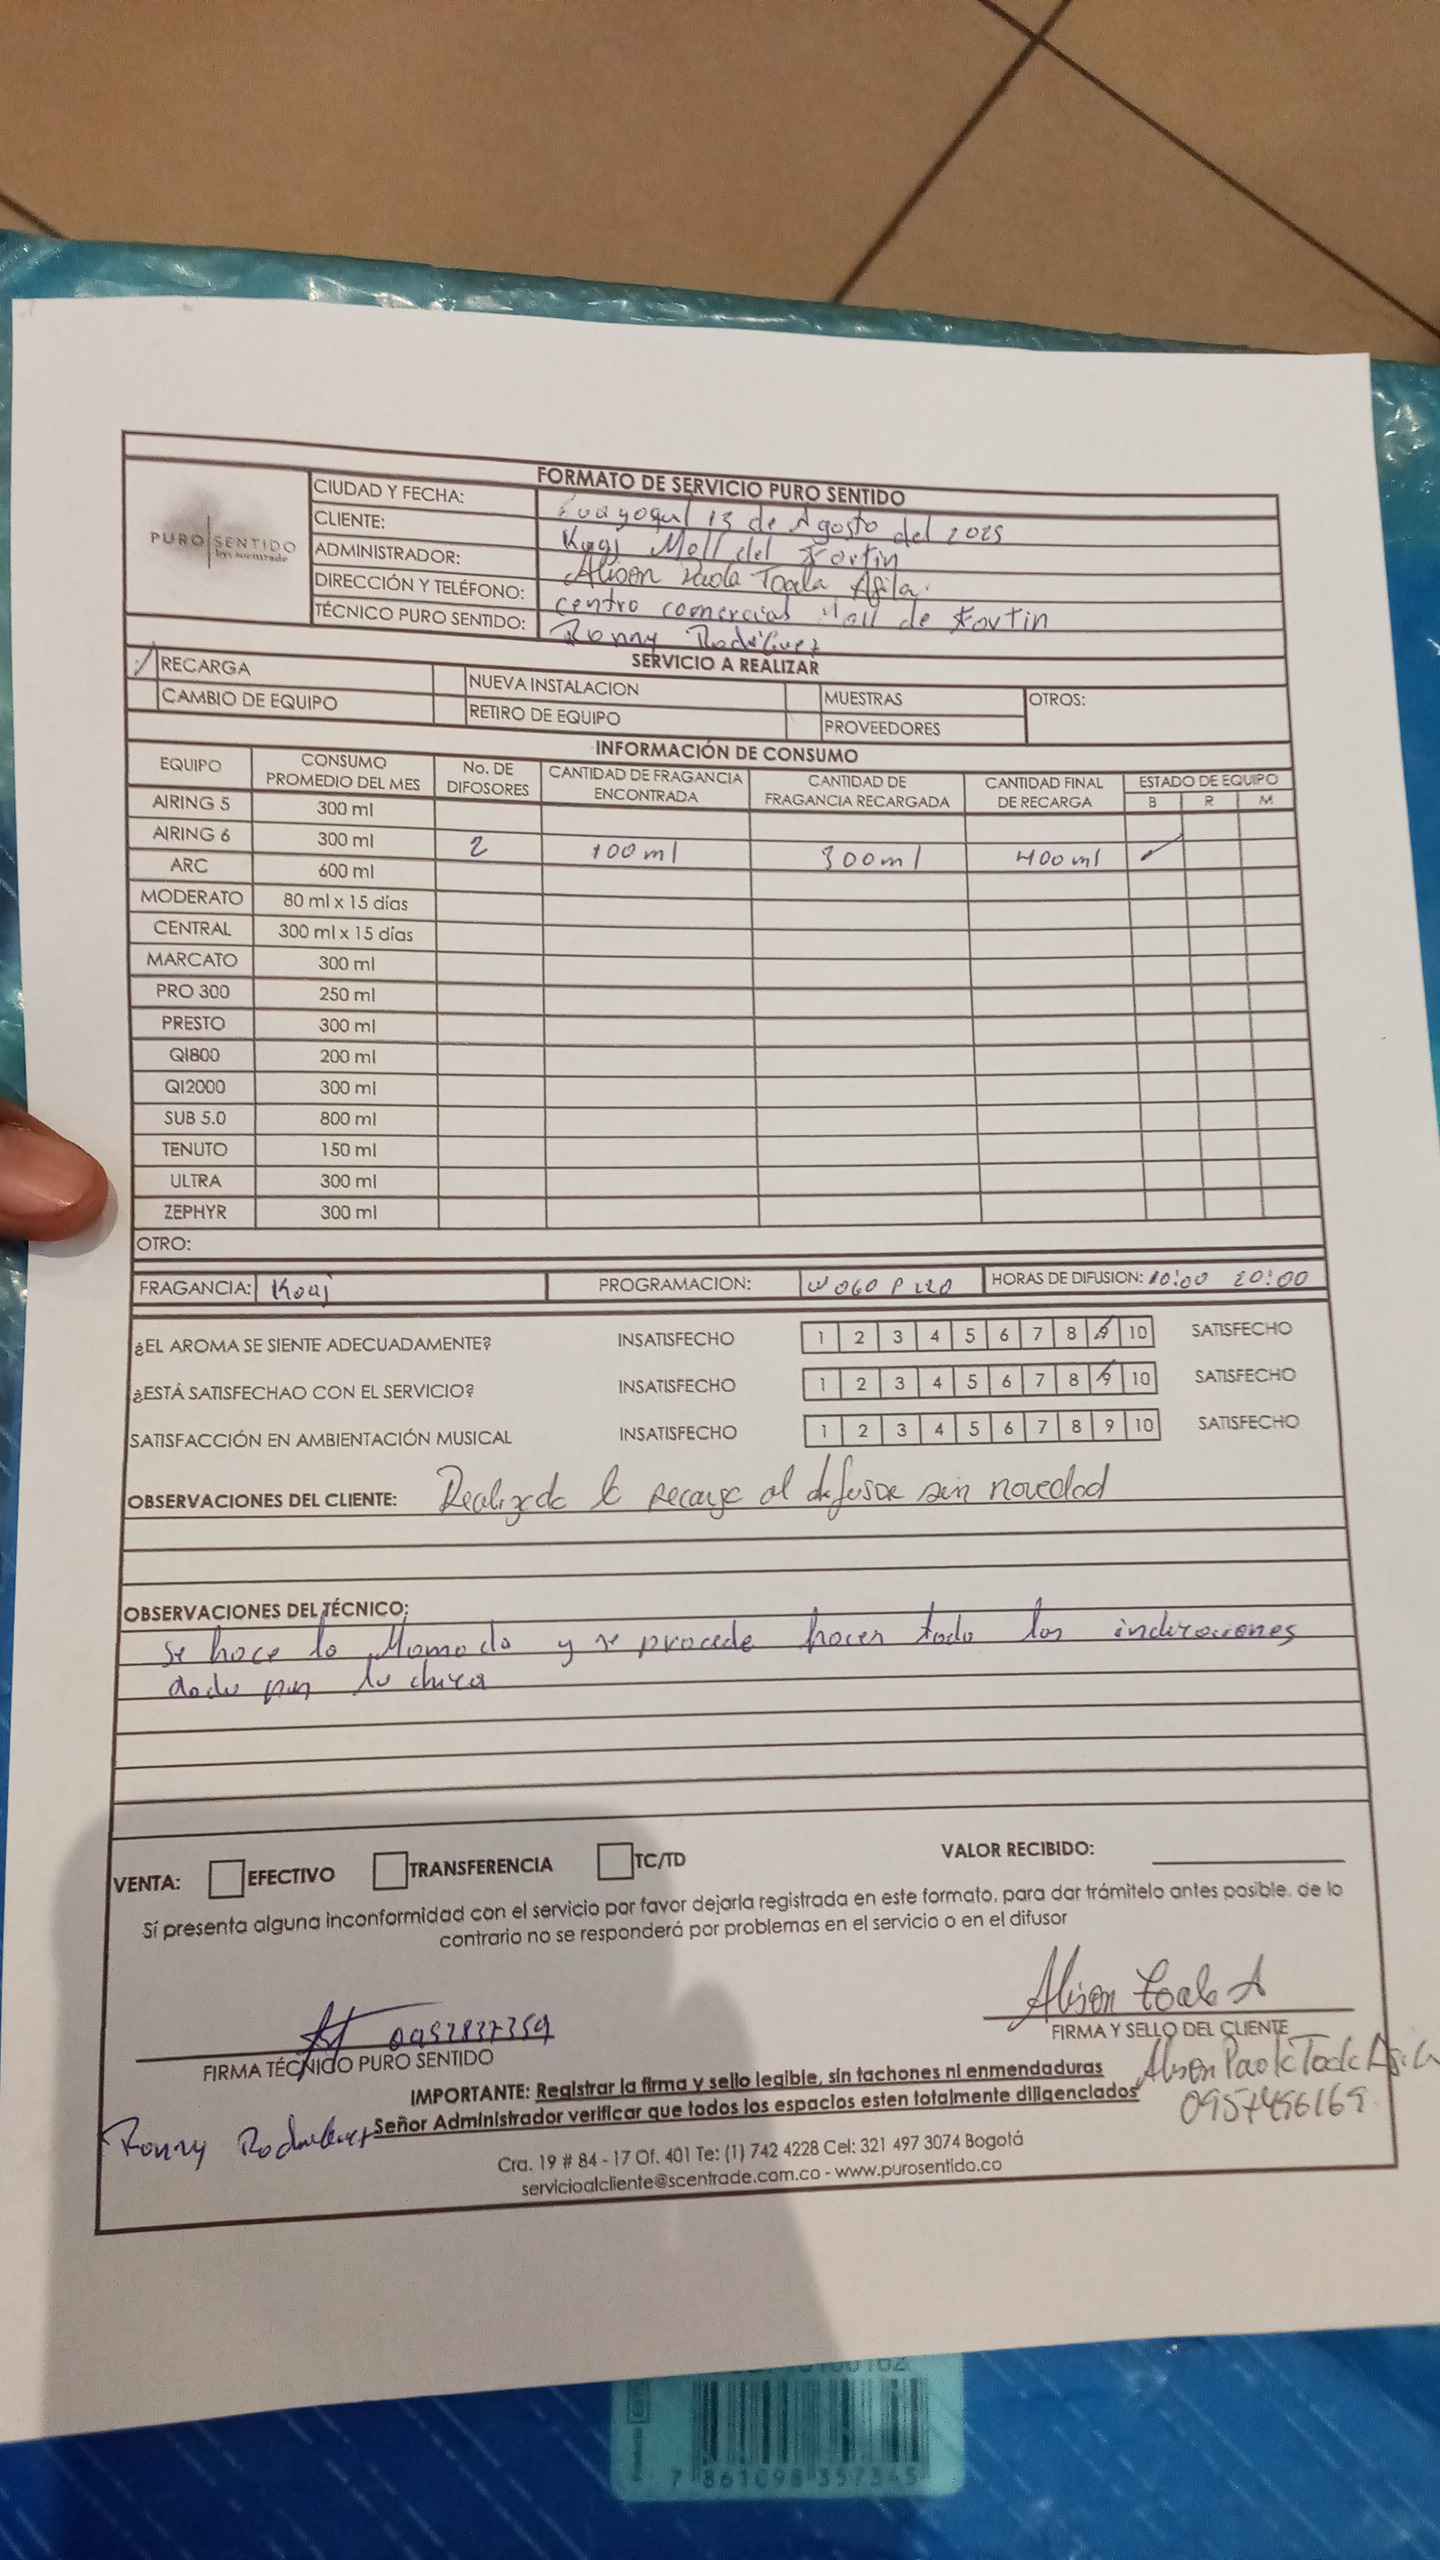 FORMATO DE SERVICIO PURO SENTIDO
PURO SENTIDO
by scentrade
CIUDAD Y FECHA: Guayaquil 13 de Agosto del 2025
CLIENTE: Koaj Mall del Fortin
ADMINISTRADOR: Alison Paola Toala Avila
DIRECCIÓN Y TELÉFONO: centro comercial Mall de Fortin
TÉCNICO PURO SENTIDO: Ronny Rodriguez
SERVICIO A REALIZAR
RECARGA NUEVA INSTALACION MUESTRAS OTROS:
CAMBIO DE EQUIPO RETIRO DE EQUIPO PROVEEDORES
INFORMACIÓN DE CONSUMO
EQUIPO CONSUMO PROMEDIO DEL MES No. DE DIFOSORES CANTIDAD DE FRAGANCIA ENCONTRADA CANTIDAD DE FRAGANCIA RECARGADA CANTIDAD FINAL DE RECARGA ESTADO DE EQUIPO
B R M
AIRING 5 300 ml
AIRING 6 300 ml 2 100 ml 300 ml 400 ml
ARC 600 ml
MODERATO 80 ml x 15 días
CENTRAL 300 ml x 15 días
MARCATO 300 ml
PRO 300 250 ml
PRESTO 300 ml
QI800 200 ml
QI2000 300 ml
SUB 5.0 800 ml
TENUTO 150 ml
ULTRA 300 ml
ZEPHYR 300 ml
OTRO:
FRAGANCIA: Koaj PROGRAMACION: W060 P220 HORAS DE DIFUSION: 10:00 20:00
¿EL AROMA SE SIENTE ADECUADAMENTE? INSATISFECHO 1 2 3 4 5 6 7 8 9 10 SATISFECHO
¿ESTÁ SATISFECHAO CON EL SERVICIO? INSATISFECHO 1 2 3 4 5 6 7 8 9 10 SATISFECHO
SATISFACCIÓN EN AMBIENTACIÓN MUSICAL INSATISFECHO 1 2 3 4 5 6 7 8 9 10 SATISFECHO
OBSERVACIONES DEL CLIENTE: Realizada la recarga al difusor sin novedad
OBSERVACIONES DEL TÉCNICO:
se hace la llamada y se procede hacer todo las indicaciones
dada por la
VENTA: EFECTIVO TRANSFERENCIA TC/TD VALOR RECIBIDO:
Sí presenta alguna inconformidad con el servicio por favor dejarla registrada en este formato, para dar trámitelo antes posible. de lo
contrario no se responderá por problemas en el servicio o en el difusor
0952837359
Alison Toala A
FIRMA TÉCNICO PURO SENTIDO
FIRMA Y SELLO DEL CLIENTE
Alison Paola Toala Avila
0957456169
IMPORTANTE: Registrar la firma y sello legible, sin tachones ni enmendaduras
Señor Administrador verificar que todos los espacios esten totalmente diligenciados
Ronny Rodriguez
Cra. 19 # 84 - 17 Of. 401 Te: (1) 742 4228 Cel: 321 497 3074 Bogotá
servicioalcliente@scentrade.com.co - www.purosentido.co
7 861098 357345